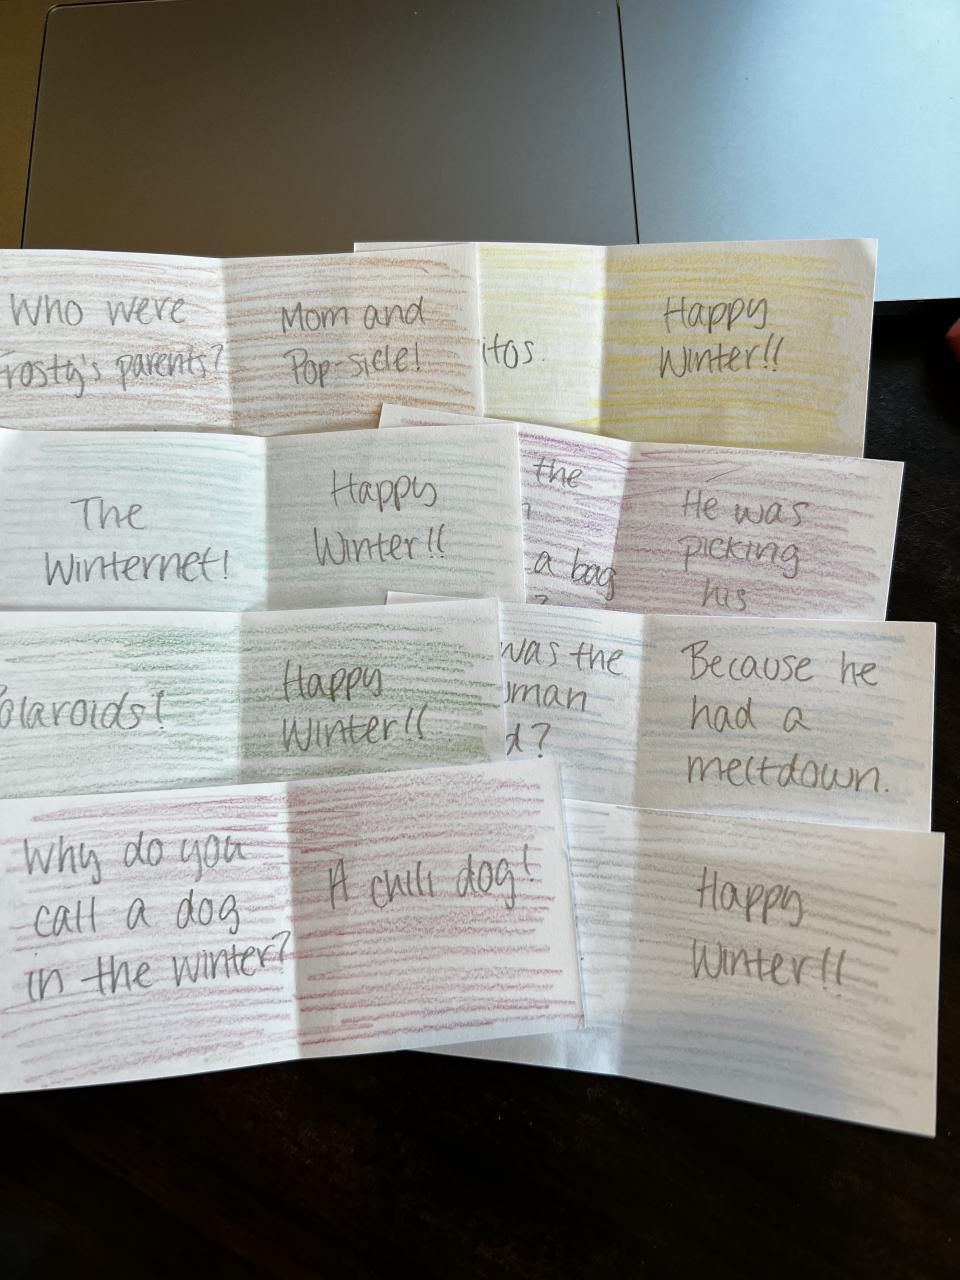 Who were
Frosty's parents?
Mom and
Pop-sicle!
itos.
Happy
Winter!!
The
Winternet!
Happy
Winter!!
the
a bag
?
He was
picking
his
Polaroids!
Happy
Winter!!
was the
man
d?
Because he
had a
meltdown.
Why do you
call a dog
in the winter?
A chili dog!
Happy
Winter!!